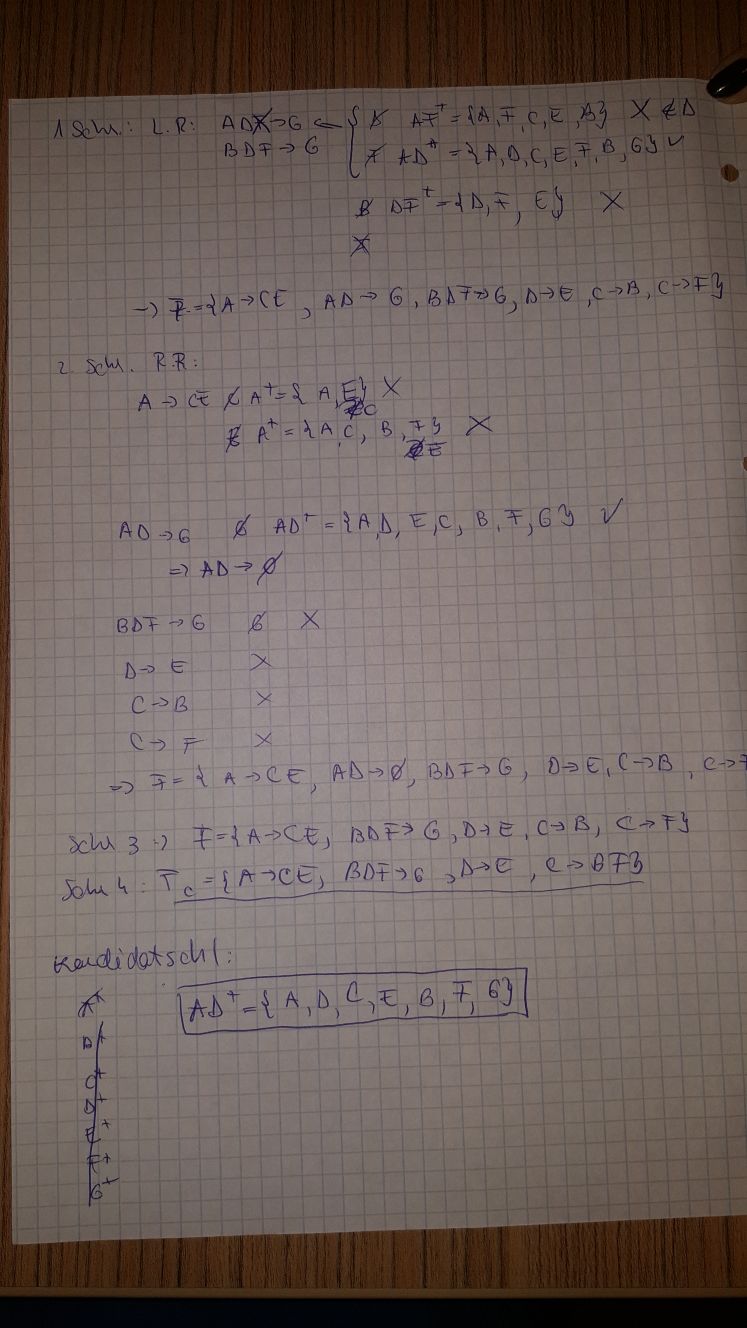 1 Schr.: L.R: ADF→G ← { D̸ AF⁺ = {A, F, C, E, B} X ∉ D
BDF → G F̸ AD⁺ = {A, D, C, E, F, B, G} ✓
B̸ DF⁺ = {D, F, E} X
X
→) F = {A→CE, AD→G, BDF→G, D→E, C→B, C→F}
2. Schr. R.R:
A → CE C̸ A⁺ = { A, E} X
C
E̸ A⁺ = {A, C, B, F} X
E
AD→G G̸ AD⁺ = {A, D, E, C, B, F, G} ✓
⇒ AD→∅
BDF→G G̸ X
D→E X
C→B X
C→F X
⇒ F = { A→CE, AD→∅, BDF→G, D→E, C→B, C→F
Schr 3 :) F = {A→CE, BDF→G, D→E, C→B, C→F}
Schr 4: F_c = {A→CE, BDF→G, D→E, C→BF}
Kandidatschl:
A⁺ AD⁺ = {A, D, C, E, B, F, G}
B⁺
C⁺
D⁺
E⁺
F⁺
G⁺